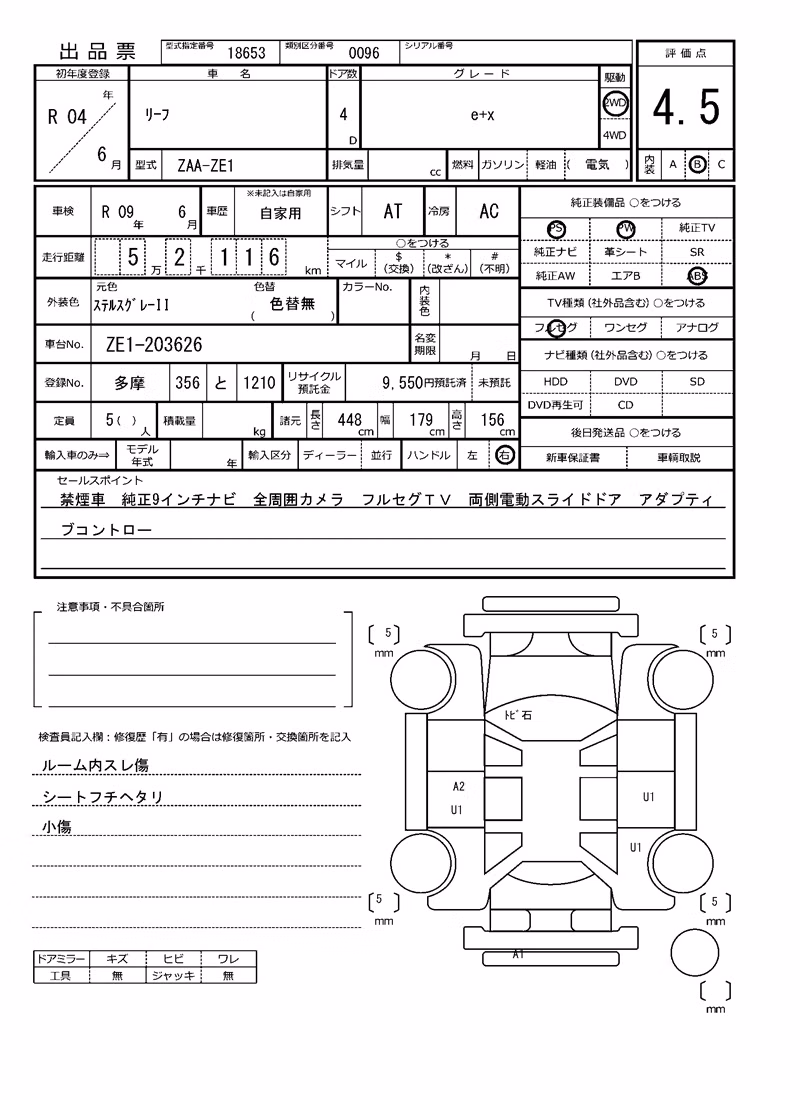 出品票 型式指定番号 18653 類別区分番号 0096 シリアル番号
評価点
4.5
内装 A B C
初年度登録 車名 ドア数 グレード 駆動
R 04 年 6 月
リーフ
4 D
e+x
2WD
4WD
型式 ZAA-ZE1 排気量 cc 燃料 ガソリン 軽油 ( 電気 )
車検 R 09 年 6 月 車歴 ※未記入は自家用 自家用 シフト AT 冷房 AC
走行距離 5 万 2 千 1 1 6 km
○をつける
マイル $ (交換) * (改ざん) # (不明)
外装色 元色 ステルスグレーII 色替 ( 色替無 ) カラーNo. 内装色
車台No. ZE1-203626 名変期限 月 日
登録No. 多摩 356 と 1210 リサイクル預託金 9,550円預託済 未預託
定員 5 ( ) 人 積載量 kg 諸元 長さ 448 cm 幅 179 cm 高さ 156 cm
輸入車のみ⇒ モデル年式 年 輸入区分 ディーラー 並行 ハンドル 左 右
純正装備品 ○をつける
PS PW 純正TV
純正ナビ 革シート SR
純正AW エアB ABS
TV種類 (社外品含む) ○をつける
フルセグ ワンセグ アナログ
ナビ種類 (社外品含む) ○をつける
HDD DVD SD
DVD再生可 CD
後日発送品 ○をつける
新車保証書 車輌取説
セールスポイント
禁煙車 純正9インチナビ 全周囲カメラ フルセグTV 両側電動スライドドア アダプティ
ブコントロー
注意事項・不具合箇所
検査員記入欄：修復歴「有」の場合は修復箇所・交換箇所を記入
ルーム内スレ傷
シートフチヘタリ
小傷
ドアミラー キズ ヒビ ワレ
工具 無 ジャッキ 無
[ 5 ] mm
[ 5 ] mm
トビ石
A2
U1
U1
U1
[ 5 ] mm
[ 5 ] mm
A1
[ ] mm